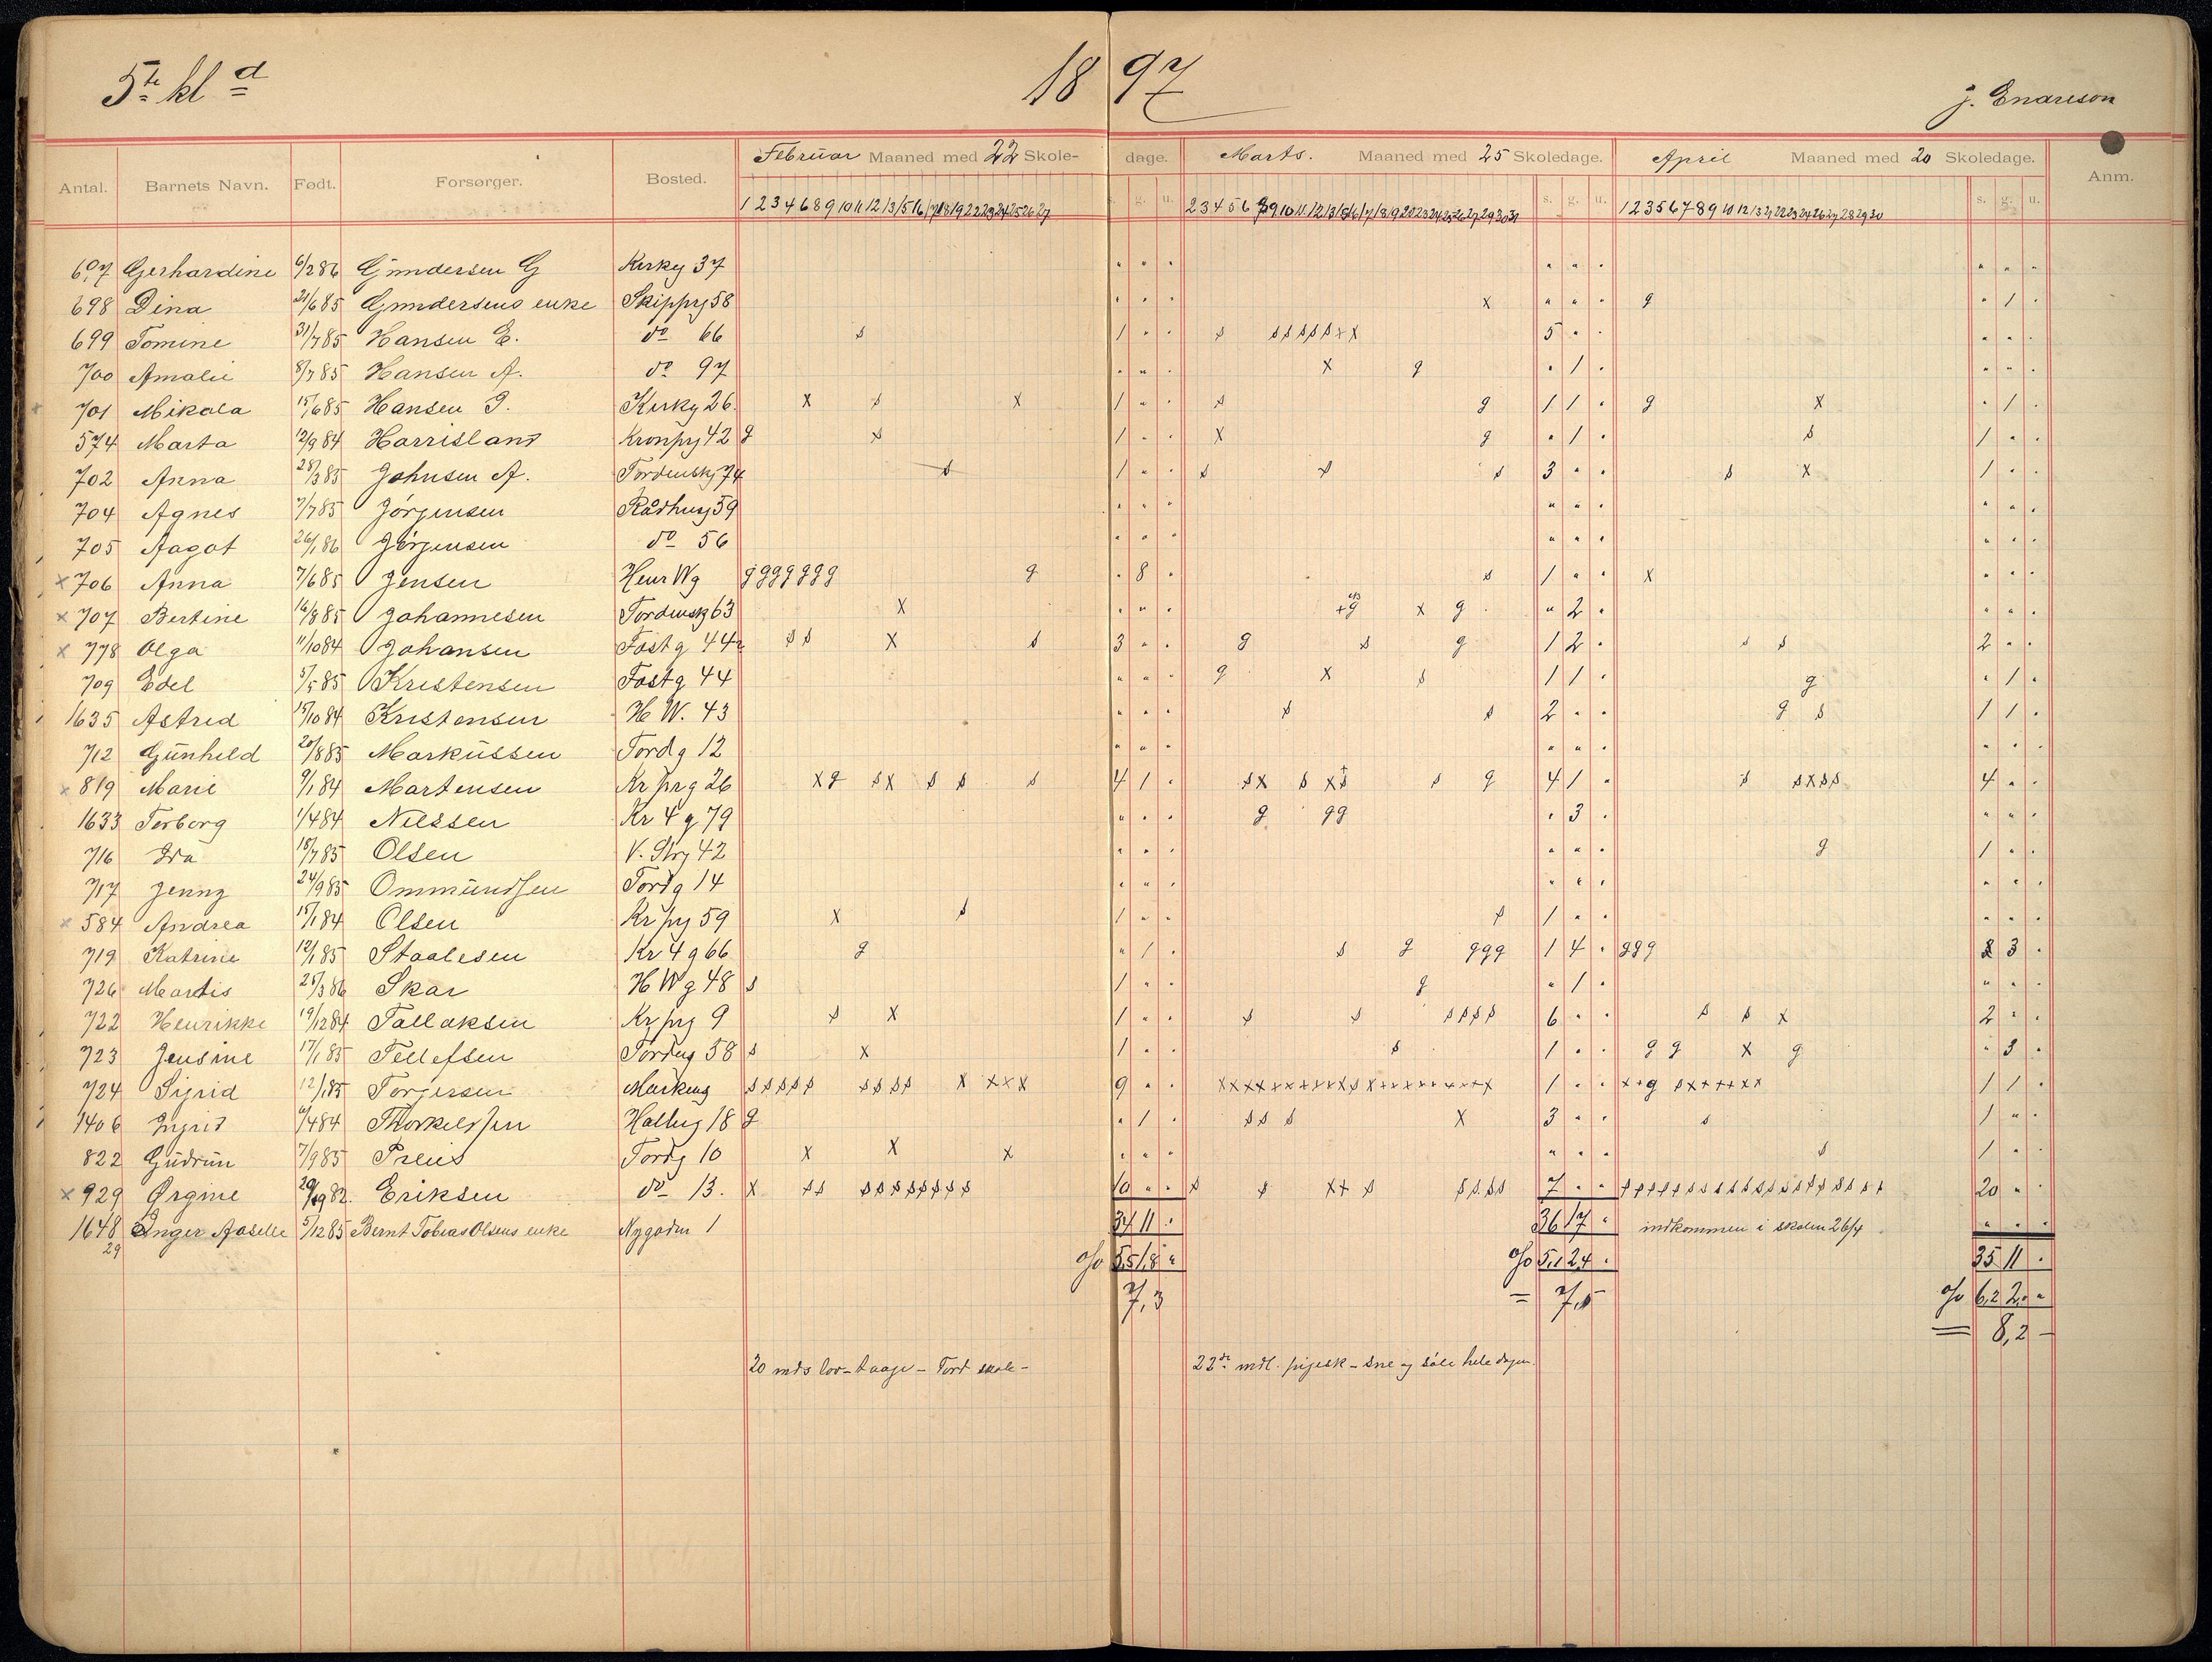 5te kl d 1897 J. Enarson
Antal. Barnets Navn. Født. Forsørger. Bosted. Februar Maaned med 22 Skole-dage. Marts. Maaned med 25 Skoledage. April Maaned med 20 Skoledage. Anm.
1 2 3 4 6 8 9 10 11 12 13 15 16 17 18 19 22 23 24 25 26 27 g. u. s. g. u. s. g. u.
697 Gerhardine 6/2 86 Gundersen G Kirkg 37 " " " " " " " " "
698 Dina 21/6 85 Gundersens enke Skipprg 58 " " " x " " " g " 1 "
699 Tomine 31/7 85 Hansen E. do 66 s 1 " " s s s s s s x x 5 " " " " "
700 Amalie 8/7 85 Hansen A. do 97 " " " x g " 1 " " " "
701 Mikala 15/6 85 Hansen J. Kirkg 26. x s x 1 " " s g 1 1 " g x " 1 "
574 Marta 12/9 84 Harrisland Kronprg 42 g s 1 " " x g " 1 " s 1 " "
702 Anna 28/3 85 Johnsen A. Tordenskj 74 s 1 " " s s s 3 " " s x 1 " "
704 Agnes 7/7 85 Jörgensen Rådhusg 59 " " " " " " " " "
705 Aagot 26/1 86 Jörgensen do 56 " " " " " " " " "
x 706 Anna 7/6 85 Jensen Henr Wg g g g g g g g g " 8 " s 1 " " x " " "
x 707 Bertine 16/8 85 Johannesen Tordensk 63 x " " " + g x g " 2 " " " "
x 778 Olga 11/10 84 Johansen Fæstg 44 s s x s 3 " " g s g 1 2 " s s 2 " "
709 Edel 5/5 85 Kristensen Fæstg 44 " " " g x s 1 1 " g " 1 "
1635 Astrid 15/10 84 Kristensen H W. 43 " " " s s 2 " " g s 1 1 "
712 Gunhild 20/8 85 Markussen Tordg 12 " " " " " " " " "
x 819 Marie 9/1 84 Martensen Kr prg 26 x g s x s s s 4 1 " s x s x s s g 4 1 " s s x s s 4 " "
1633 Torborg 1/4 84 Nilssen Kr 4 g 79 " " " g g g " 3 " " " "
716 Ida 18/7 85 Olsen V. Strg 42 " " " " " " g 1 " "
717 Jenny 24/9 85 Ommundsen Tordg 14 " " " " " " " " "
x 584 Andrea 15/1 84 Olsen Kr prg 59 x s 1 " " s 1 " " " " "
719 Katrine 12/1 85 Staalesen Kr 4 g 66 g " 1 " s g g g g 1 4 " g g g 3 "
726 Mardis 25/3 86 Skar H Wg 48 s 1 " " g " 1 " " " "
722 Henrikke 19/12 84 Tallaksen Kr prg 9 s x 1 " " s s s s s s 6 " " s s x 2 " "
723 Jensine 17/1 85 Tellefsen Tordng 58 s x 1 " " s 1 " " g g x g " 3 "
724 Sigrid 12/1 85 Torjussen Markeng s s s s s s s s s x x x x 9 " " 1 " " x + g s x + + + x x 1 1 "
1406 Ingrid 6/4 84 Thorkelsen Holbrg 18 g " 1 " s s s x 3 " " s 1 " "
822 Gudrun 7/9 85 Preus Tordg 10 x x x " " " " " " s 1 " "
x 929 Ørgine 82. Eriksen do 13. x s s s s s s s s s s 10 " " s s x + s s s s s 7 " " 20 " "
1648 Inger Aaselle 5/12 85 Bernt Tobias Olsens enke Nygaden 1 34 11 " 36 17 " indkommen i skolen 26/4 " " "
29 o/o 5,5 1,8 " o/o 5,1 2,4 " 35 11 "
7,3 = 7,5 o/o 6,2 2,0 "
= 8,2 -
20 mds lov - taage - Tord skole - 22de mdl. pigesk - sne og søle hele dagen.